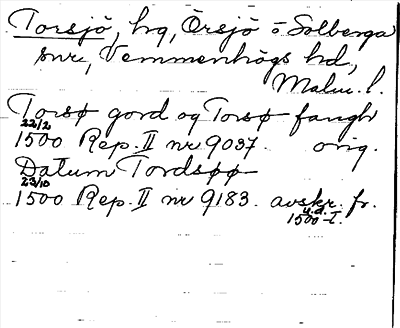 Torsjö, hg, Örsjö o Solberga
snr, Vemmenhögs hd,
Malm. l.
Torsø gord og Torsø fangh
22/2
1500 Rep. II nr 9037. orig.
Datum Tordsøø
23/10
1500 Rep. II nr 9183. avskr. fr.
u.d.
1500-t.